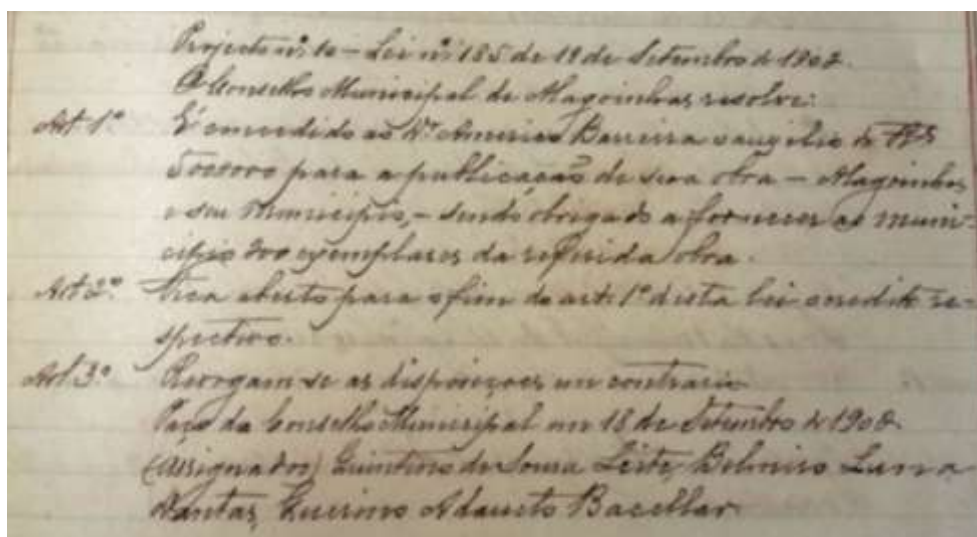 Projecto nº 10 – Lei nº 185 de 19 de Setembro de 1908.
O Conselho Municipal de Alagoinhas, resolve:
Art. 1º É concedido ao Dr. Americo Barreira o auxilio de
500$000 para a publicação de sua obra – Alagoinhas
e seu Municipio, – sendo obrigado a fornecer ao muni-
cipio 200 exemplares da referida obra.
Art. 2º Fica aberto para o fim do art. 1º desta lei o credito re-
spectivo.
Art. 3º Revogam-se as disposições em contrario
Paço do Conselho Municipal em 18 de Setembro de 1908.
(Assignados) de Souza Leite, Belmiro
Dantas, Adaucto Bacellar.